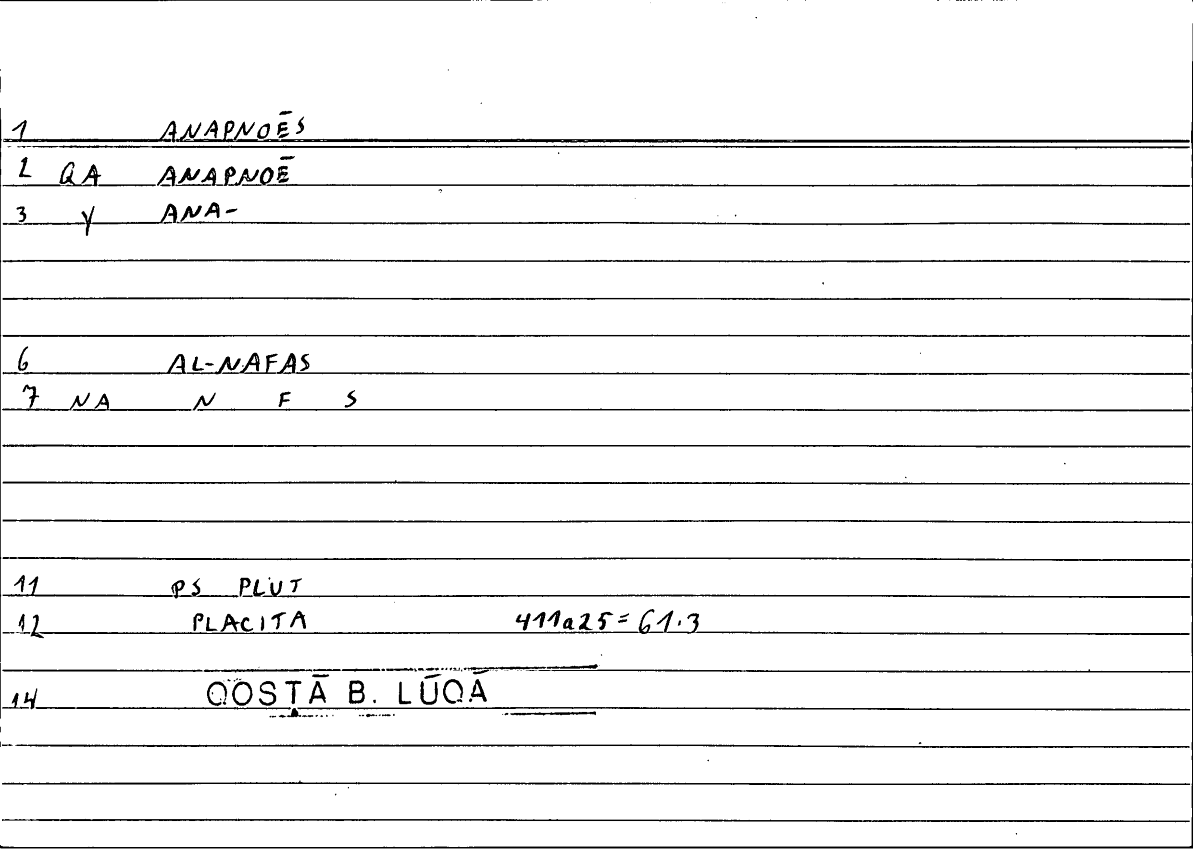 1 ANAPNOĒS
2 QA ANAPNOĒ
3 Y ANA-
6 AL-NAFAS
7 NA N F S
11 PS PLUT
12 PLACITA 411a25=61.3
14 QOSṬĀ B. LŪQĀ